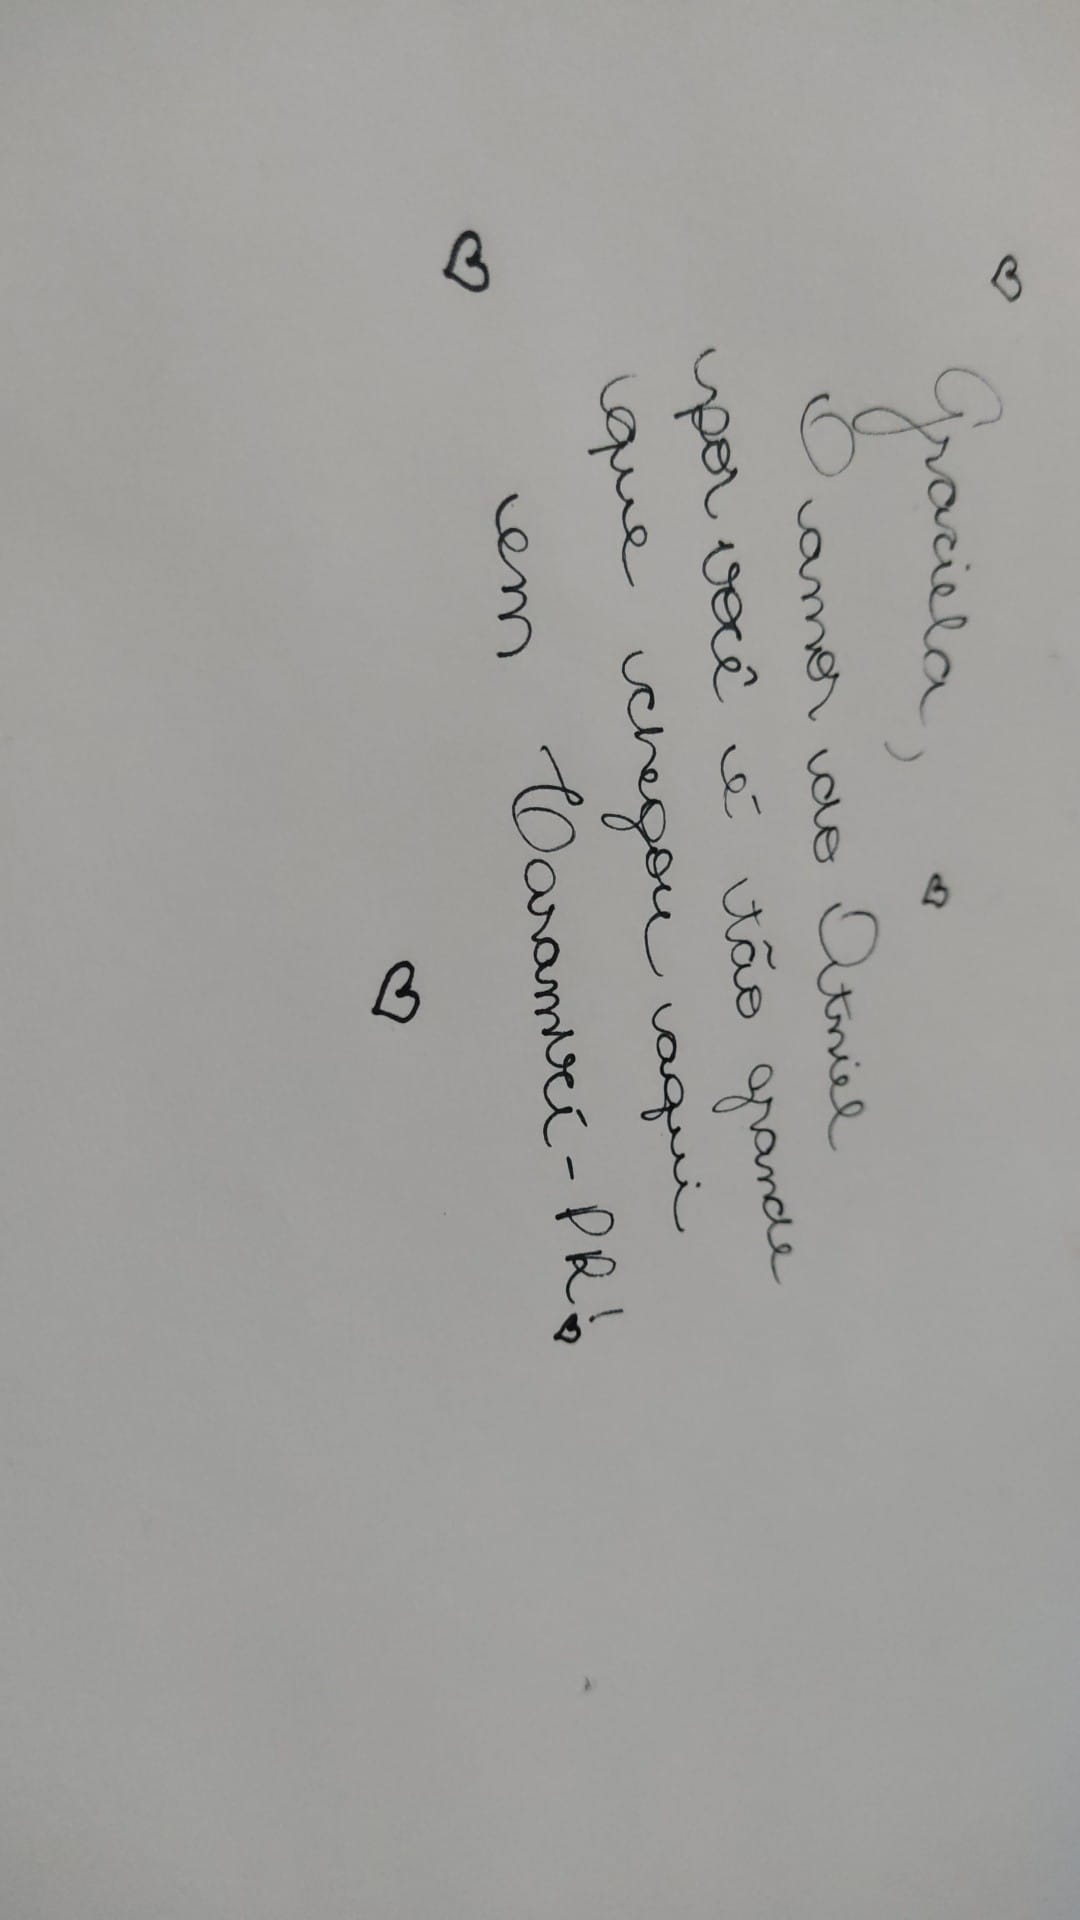 Graciela,
O amor do Otniel
por você é tão grande
que chegou aqui
em Carambeí - PR!